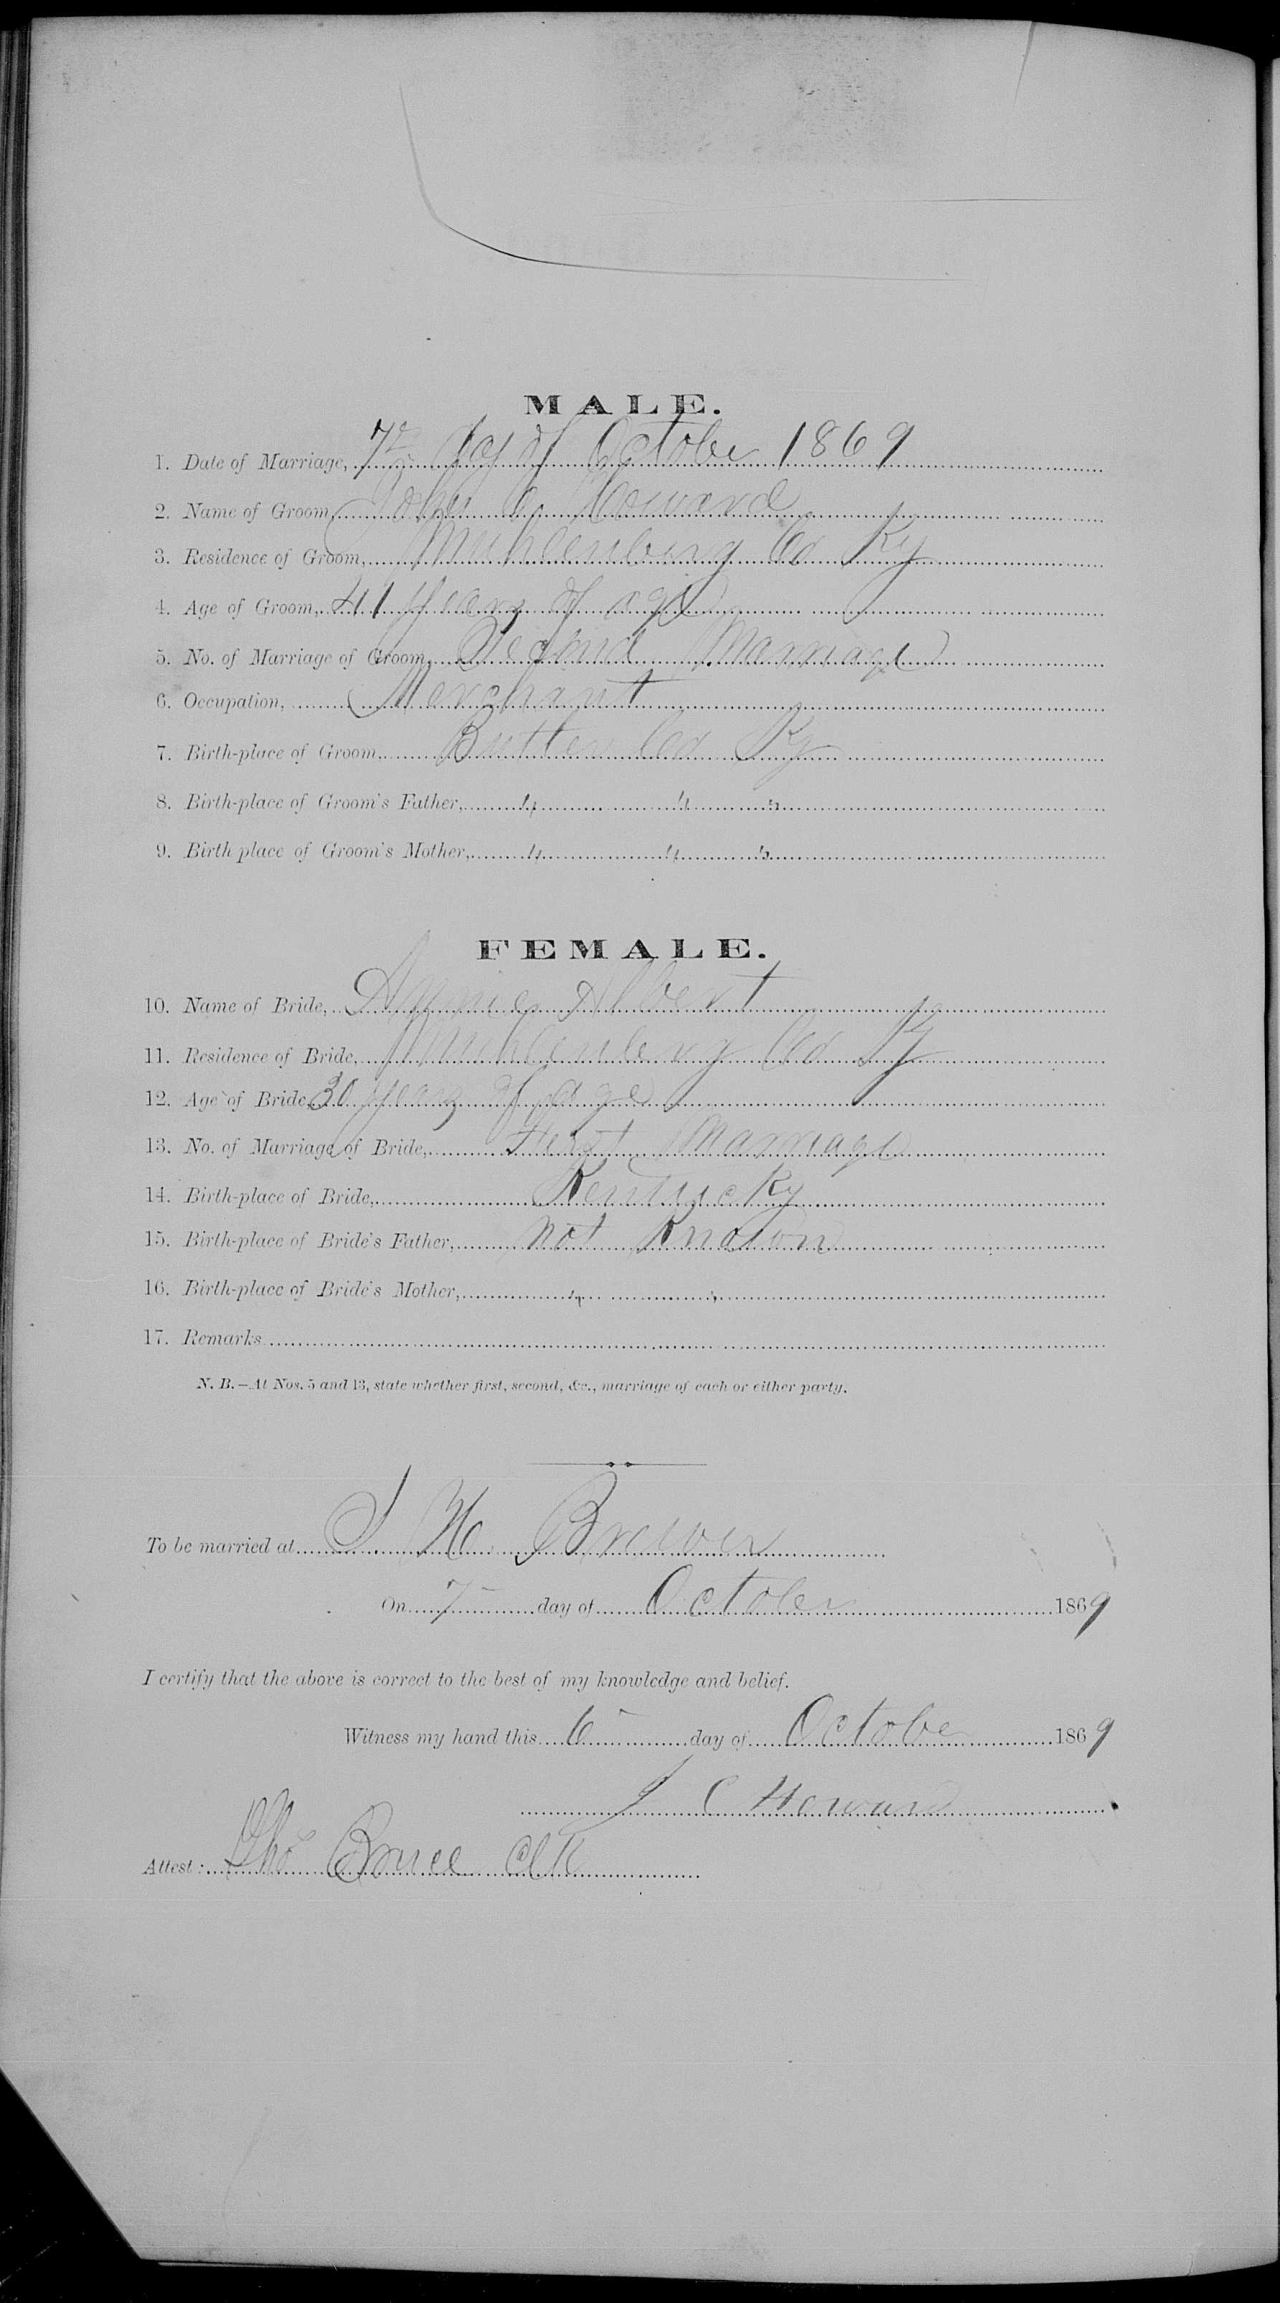 MALE.
1. Date of Marriage, 7th day of October 1869
2. Name of Groom, John C. Howard
3. Residence of Groom, Muhlenburg Co Ky
4. Age of Groom, 41 years of age
5. No. of Marriage of Groom, Second Marriage
6. Occupation, Merchant
7. Birth-place of Groom, Butler Co Ky
8. Birth-place of Groom's Father, " " "
9. Birth place of Groom's Mother, " " "
FEMALE.
10. Name of Bride, Annie Albert
11. Residence of Bride, Muhlenberg Co Ky
12. Age of Bride 30 years of age
13. No. of Marriage of Bride, First Marriage
14. Birth-place of Bride, Kentucky
15. Birth-place of Bride's Father, Not Known
16. Birth-place of Bride's Mother, " "
17. Remarks
N. B.—At Nos. 5 and 13, state whether first, second, &c., marriage of each or either party.
To be married at H. Brewer
On 7 day of October 1869
I certify that the above is correct to the best of my knowledge and belief.
Witness my hand this 6 day of October 1869
J C Howard
Attest: Thos Bruce Clk